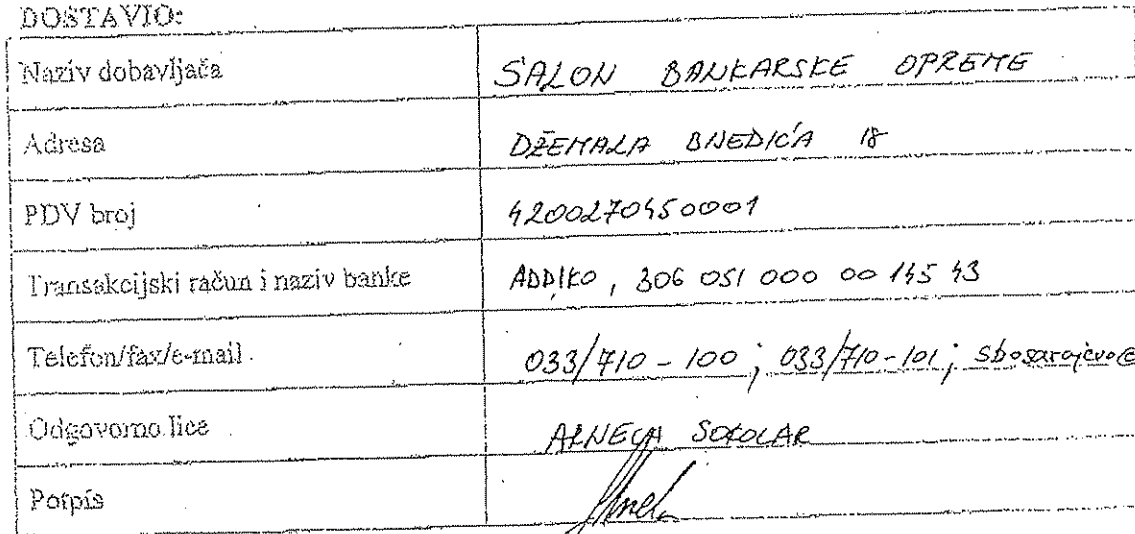 DOSTAVIO:
Naziv dobavljača SALON BANKARSKE OPREME
Adresa DŽEMALA BIJEDIĆA 18
PDV broj 4200270450001
Transakcijski račun i naziv banke ADDIKO, 306 051 000 00 145 43
Telefon/fax/e-mail 033/710-100; 033/710-101; sbosarajevo@
Odgovorno lice SOKOLAR
Potpis